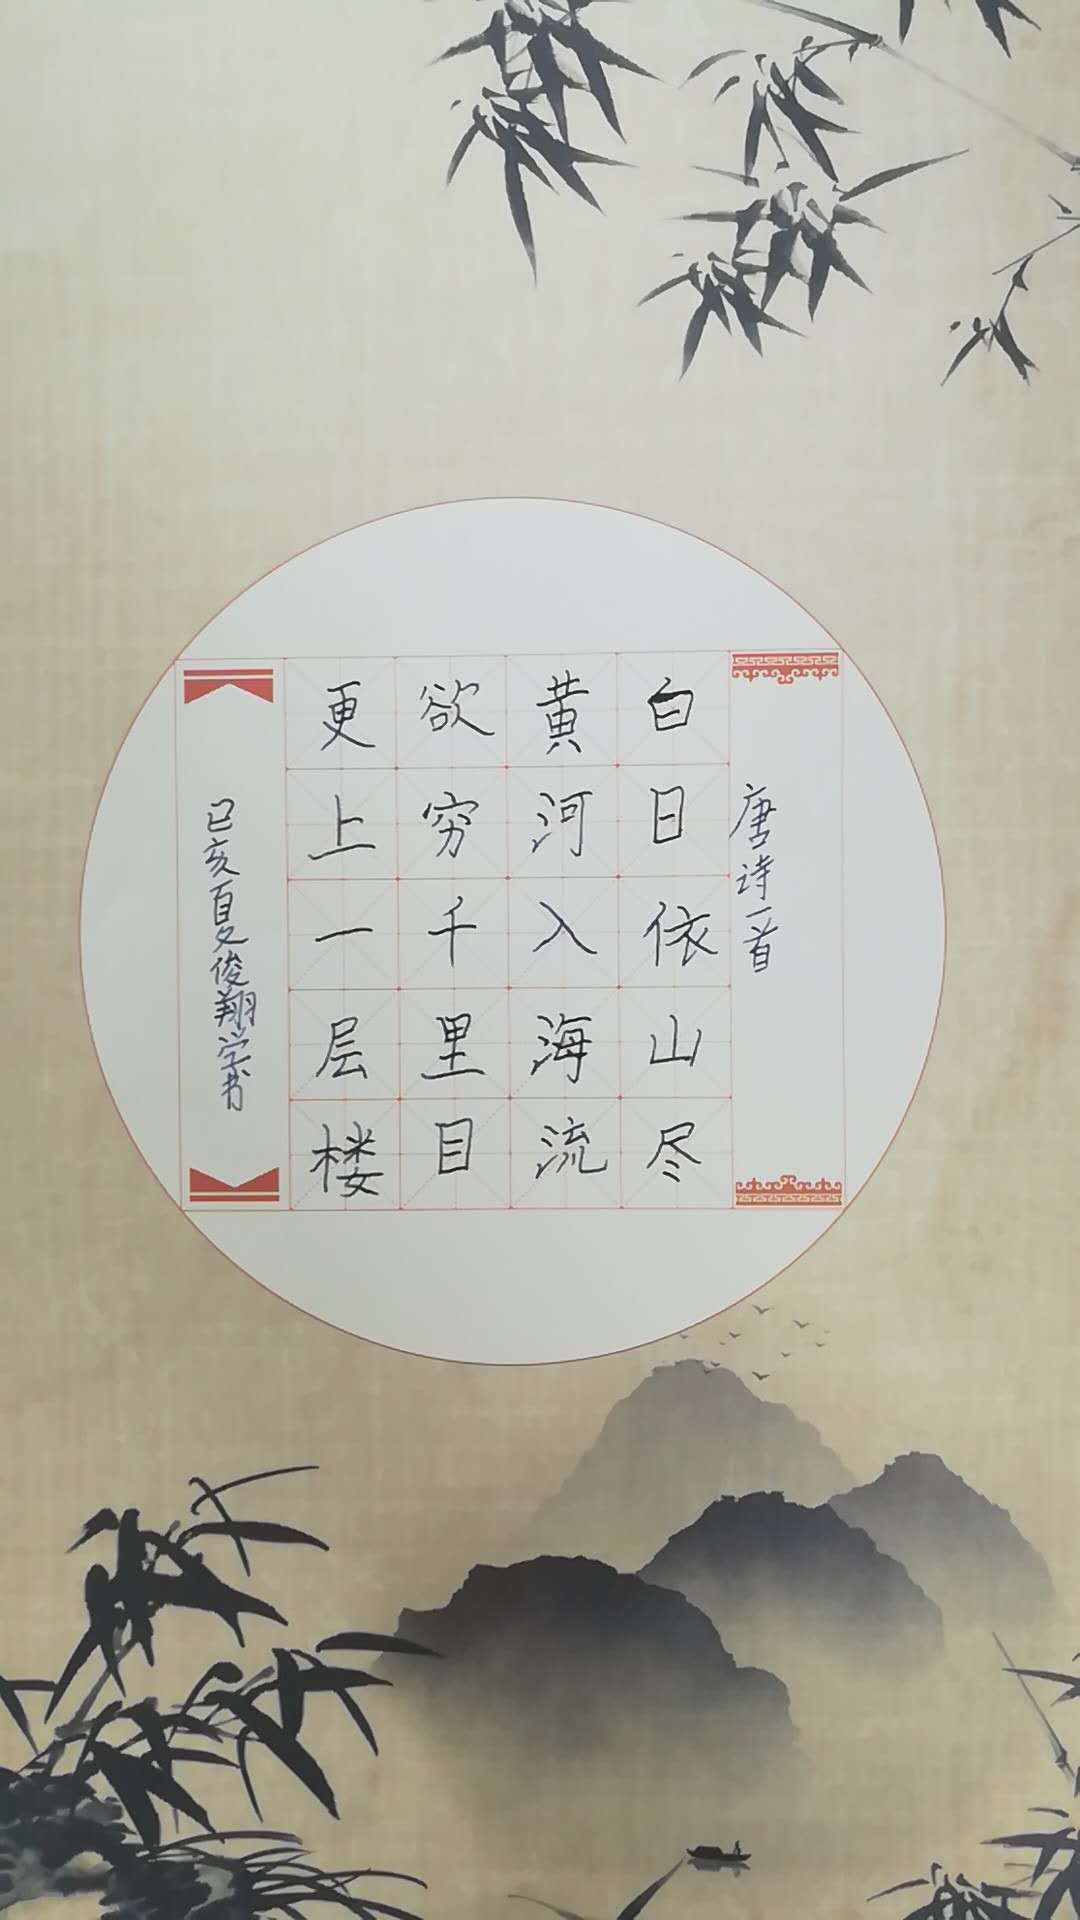 唐诗一首
白日依山尽
黄河入海流
欲穷千里目
更上一层楼
己亥夏俊翔学书